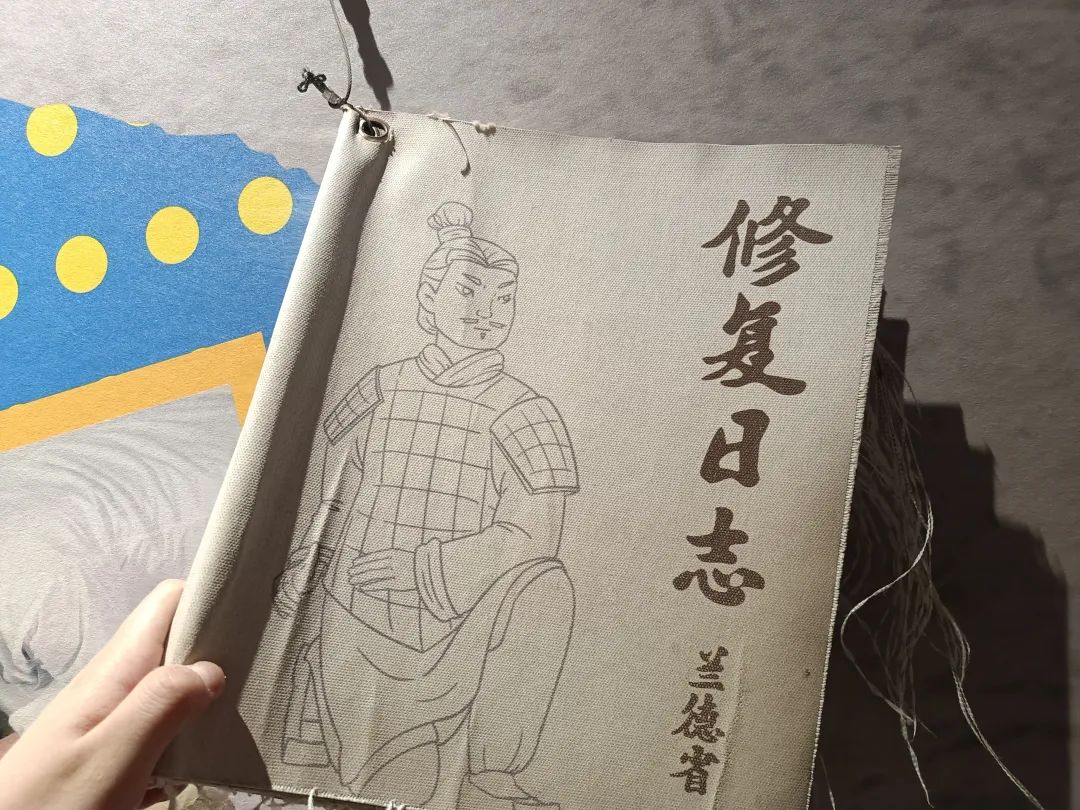 修复日志
兰德省